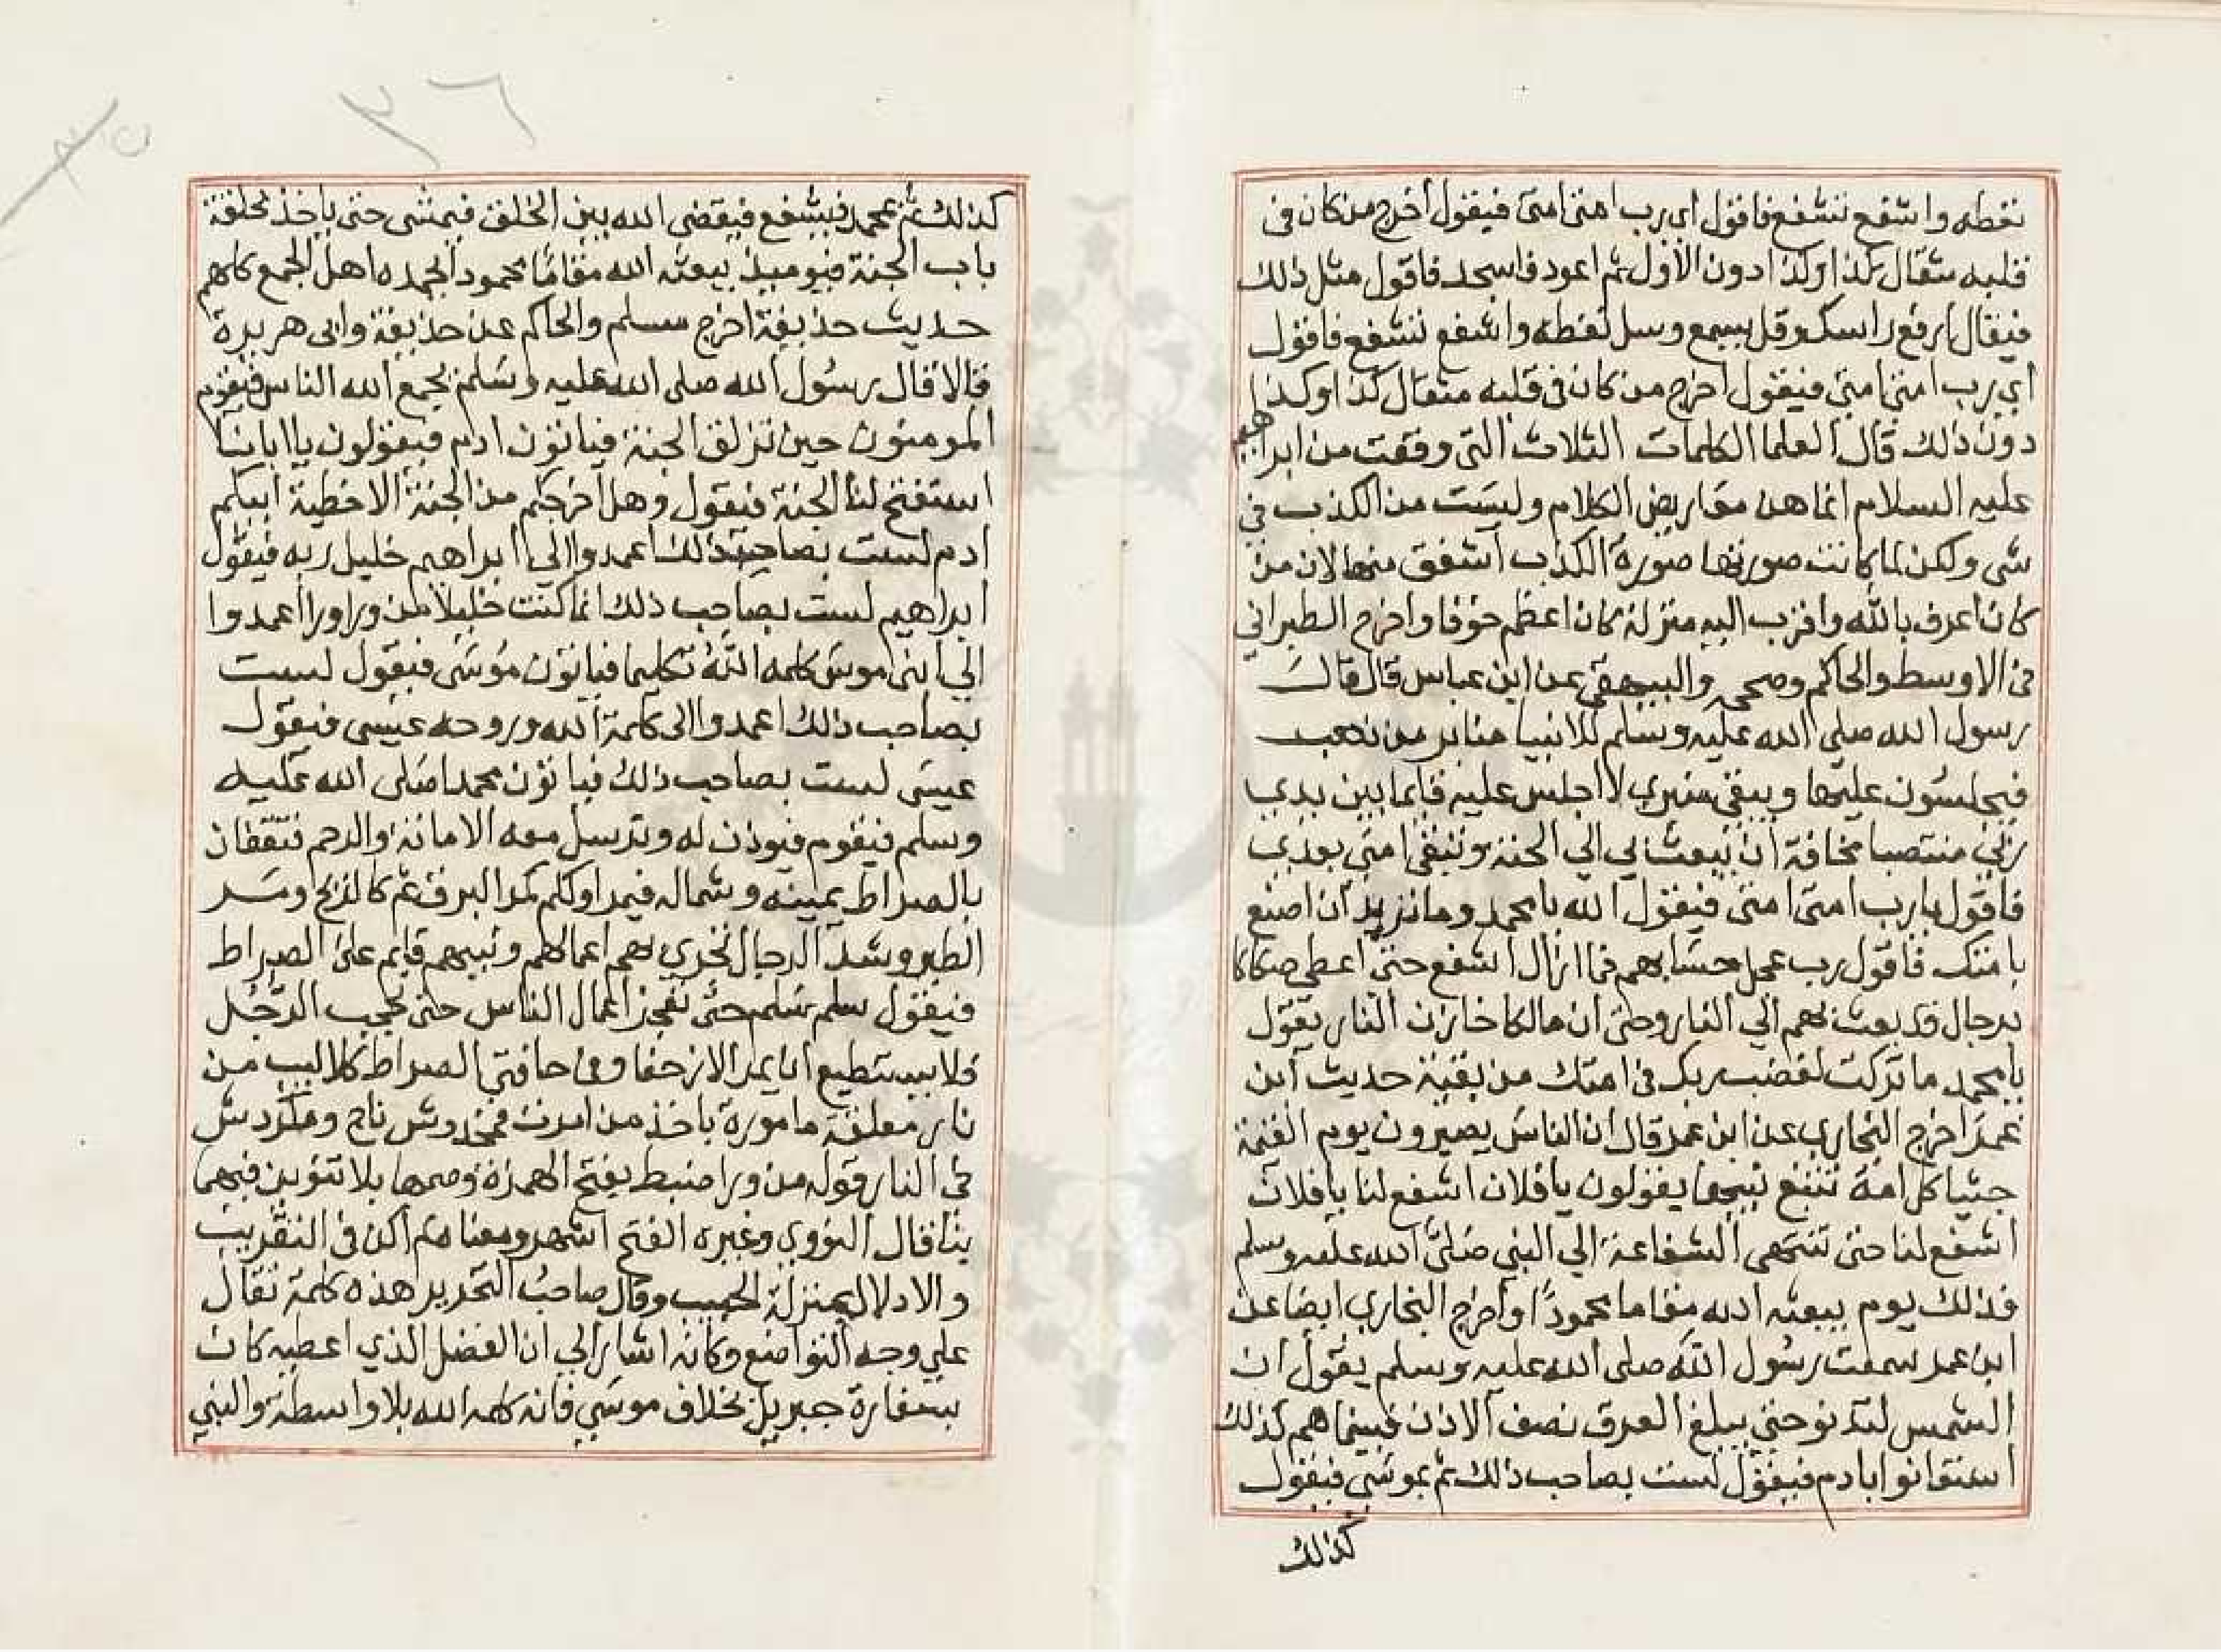 تعطه واشفع تشفع فاقول اى رب امتى امتى فيقول أخرج من كان فى
قلبه مثقال كذا وكذا دون الأول ثم اعود فاسجد فاقول مثل ذلك
فيقال أرفع راسك وقل يسمع وسل تعطه واشفع تشفع فاقول
أي رب امتى امتى فيقول اخرج من كان فى قلبه مثقال كذا وكذا
دون ذلك قال العلما الكلمات الثلاث التى وقعت من ابراهيم
عليه السلام انما هن معاريض الكلام وليست من الكذب فى
شى ولكن لما كانت صورتها صورة الكذب أشفق منها لان من
كان اعرف بالله واقرب اليه منزلة كان اعظم خوفا واخرج الطبرانى
فى الاوسط والحاكم وصححه والبيهقى عن ابن عباس قال قال
رسول الله صلى الله عليه وسلم للانبيا منابر من ذهب
فيجلسون عليها ويبقى منبري لا اجلس عليه قايما بين يدي
ربى منتصبا مخافة ان يبعث بي الى الجنة وتبقى امتى بعدي
فاقول يارب امتى امتى فيقول الله يامحمد وما تريد ان اصنع
بامتك فاقول رب عجل حسابهم فما ازال اشفع حتى اعطى صكاكا
برجال قد بعث بهم الي النار وحتى ان مالكا خازن النار يقول
يامحمد ما تركت لغضب ربك فى امتك من بقية حديث ابن
عمر اخرج البخاري عن ابن عمر قال ان الناس يصيرون يوم القيمة
جثيا كل امة تتبع نبيها يقولون يافلان اشفع لنا يافلان
اشفع لنا حتى تنتهى الشفاعة الي النبي صلى الله عليه وسلم
فذلك يوم يبعثه الله مقاما محمودا واخرج البخاري ايضا عن
ابن عمر سمعت رسول الله صلى الله عليه وسلم يقول ان
الشمس لتدنو حتى يبلغ العرق نصف الاذن فبينما هم كذلك
استغاثوا بادم فيقول لست بصاحب ذلك ثم بموسى فيقول
كذلك
٢٦
كذلك ثم بمحمد فيشفع فيقضى الله بين الخلق فيمشى حتى ياخذ بحلقة
باب الجنة فيوميذ يبعثه الله مقاما محمودا يحمده اهل الجمع كلهم
حديث حذيفة اخرج مسلم والحاكم عن حذيفة وابى هريرة
قالا قال رسول الله صلى الله عليه وسلم يجمع الله الناس فيقوم
المومنون حين تزلف الجنة فياتون ادم فيقولون ياابانا
استفتح لنا الجنة فيقول وهل أخرجكم من الجنة الا خطية أبيكم
ادم لست بصاحب ذلك اعمدوا الي ابراهيم خليل ربه فيقول
ابراهيم لست بصاحب ذلك انما كنت خليلا من ورا ورا أعمدوا
الي ابنى موسى كلمه الله تكليما فياتون موسى فيقول لست
بصاحب ذلك اعمدوا الى كلمة الله وروحه عيسى فيقول
عيسى لست بصاحب ذلك فياتون محمدا صلى الله عليه
وسلم فيقوم فيوذن له وترسل معه الامانة والرحم فتقفان
بالصراط يمينه وشماله فيمر اولكم كمر البرق ثم كالريح ومر
الطير وشد الرجال تجري بهم اعمالهم ونبيهم قايم على الصراط
فيقول سلم سلم حتى تعجز اعمال الناس حتى يجيب الرجل
فلا يستطيع ان يمر الا زحفا وفى حافتي الصراط كلاليب من
نار معلقة مامورة ياخذ من امرت فمخدوش ناج ومكردش
فى النار قوله من ورا ضبط بفتح الهمزة وضمها بلا تنوين فيهما
بنا قال النووي وغيره الفتح اشهر ومعناه لم أكن فى التقريب
والادلال بمنزلة الحبيب وقال صاحب التحرير هذه كلمة تقال
علي وجه التواضع وكانه اشار الي ان الفضل الذي اعطيه كان
بسفارة جبريل بخلاف موسي فانه كلمه الله بلا واسطة والنبي